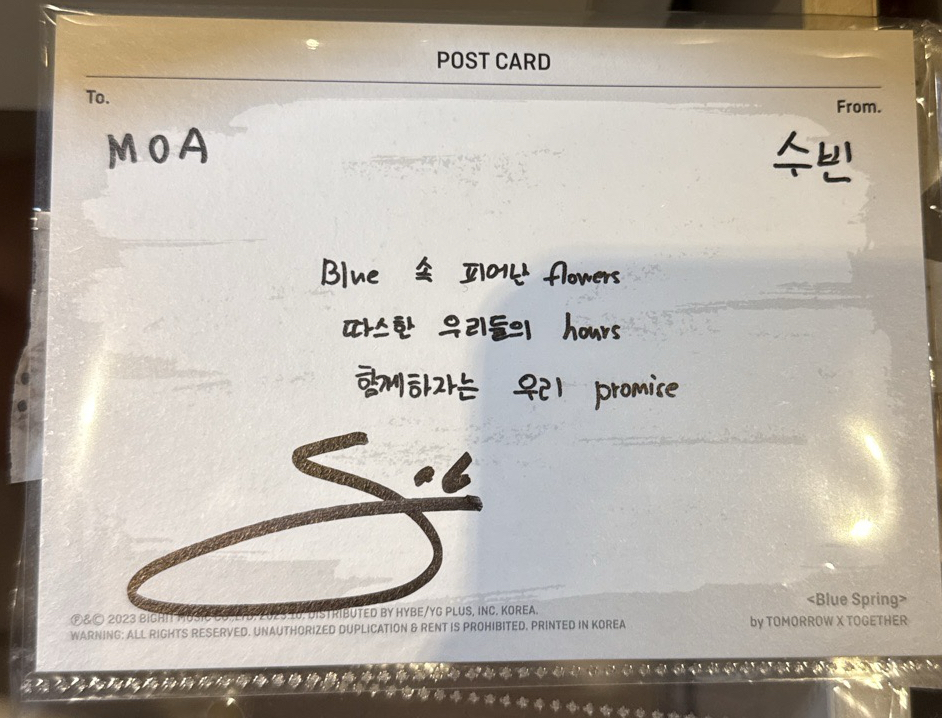 POST CARD
To.
From.
MOA
수빈
Blue 속 피어난 flowers
따스한 우리들의 hours
함께하자는 우리 promise
℗&© 2023 BIGHIT MUSIC CO., LTD. 2023.10. DISTRIBUTED BY HYBE/YG PLUS, INC. KOREA.
WARNING: ALL RIGHTS RESERVED. UNAUTHORIZED DUPLICATION & RENT IS PROHIBITED. PRINTED IN KOREA
<Blue Spring>
by TOMORROW X TOGETHER